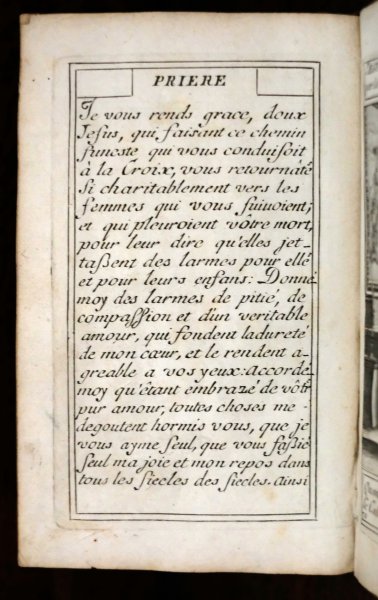 PRIERE
Je vous rends grace, doux
Jesus, qui faisant ce chemin
funeste qui vous conduisoit
à la Croix, vous retournâte
si charitablement vers les
femmes qui vous suivoient;
et qui pleuroient vôtre mort,
pour leur dire qu'elles jet-
tassent des larmes pour elle
et pour leurs enfans: Donne
moy des larmes de pitié, de
compassion et d'un veritable
amour, qui fondent la dureté
de mon cœur, et le rendent a-
greable a vos yeux: accorde
moy qu'étant embrazé de vôtr
pur amour, toutes choses me
degoutent hormis vous, que je
vous ayme seul, que vous fassie
seul ma joie et mon repos dans
tous les siecles des siecles. ainsi